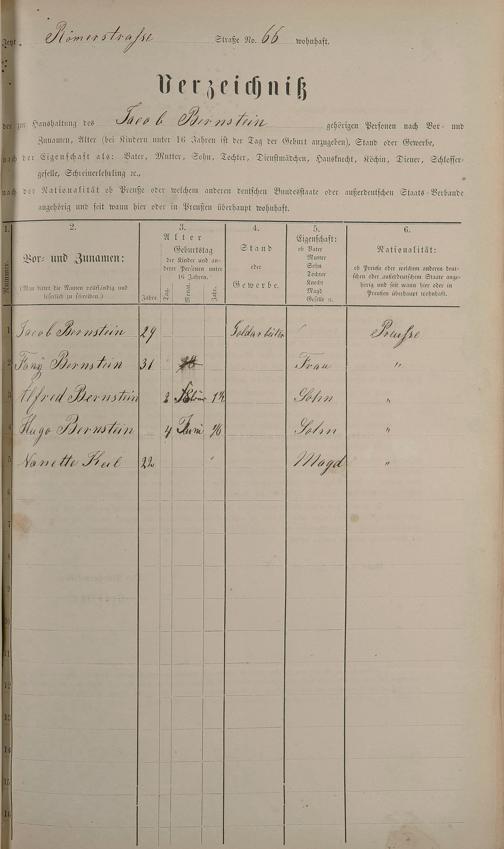 Jetzt Römerstrasse Straße No. 66 wohnhaft.
Verzeichniß
der zur Haushaltung des Jacob Bernstein gehörigen Personen nach Vor- und
Zunamen, Alter (bei Kindern unter 16 Jahren ist der Tag der Geburt anzugeben), Stand oder Gewerbe,
nach der Eigenschaft als: Vater, Mutter, Sohn, Tochter, Dienstmädchen, Hausknecht, Köchin, Diener, Schlosser-
geselle, Schreinerlehrling ꝛc.,
nach der Nationalität ob Preuße oder welchem anderen deutschen Bundesstaate oder außerdeutschen Staats-Verbande
angehörig und seit wann hier oder in Preußen überhaupt wohnhaft.
1. 2. 3. 4. 5. 6.
Nummer.
Vor- und Zunamen:
(Man bittet die Namen vollständig und
leserlich zu schreiben.)
Alter
Geburtstag
der Kinder und an-
derer Personen unter
16 Jahren.
Jahre Tag. Monat. Jahr.
Stand
oder
Gewerbe.
Eigenschaft:
ob Vater
Mutter
Sohn
Tochter
Knecht
Magd
Geselle u.
Nationalität:
ob Preuße oder welchem anderen deut-
schen oder außerdeutschen Staate ange-
hörig und seit wann hier oder in
Preußen überhaupt wohnhaft.
1 Jacob Bernstein 29 Goldarbeiter Preusse
2 Fany Bernstein 31 Frau "
3 Alfred Bernstein 2 Sohn "
4 Hugo Bernstein 4 Juni Sohn "
5 Nanette Keil 22 Magd "
6
7
8
9
10
11
12
13
14
15
16